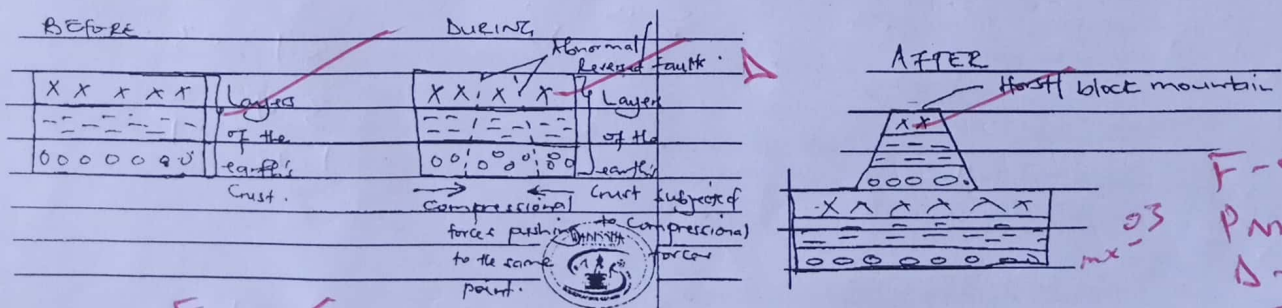 BEFORE
Layers
of the
earth's
Crust.
DURING
Abnormal/
Reversed faults.
Layers
of the
earth's
Crust subjected
to compressional
forces
Compressional
forces pushing
to the same
point.
AFTER
Horst/ block mountain
F -
mx 03